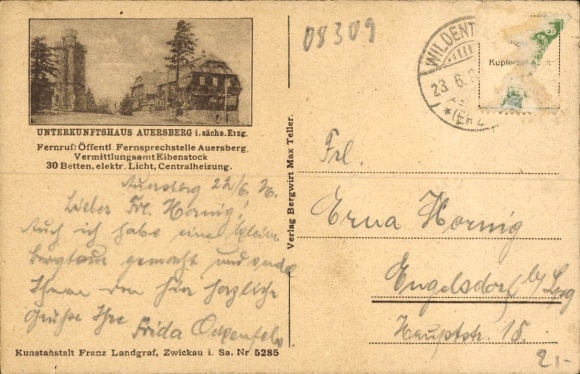 08309
UNTERKUNFTSHAUS AUERSBERG i. sächs. Erzg.
Fernruf: Öffentl Fernsprechstelle Auersberg,
Vermittlungsamt Eibenstock
30 Betten, elektr. Licht, Centralheizung.
Auersberg 22/6.
Liebes Frl. Hornig!
Auch ich habe eine kleine
Bergtour gemacht und sende
Ihnen von hier herzliche
Grüße Ihre Frida
Kunstanstalt Franz Landgraf, Zwickau i. Sa. Nr 5285
Verlag Bergwirt Max Teller.
WILDENT
23.6.
(ERZ
Frl.
Erna Hornig
Engelsdorf b/
Hauptstr. 18.
2,-